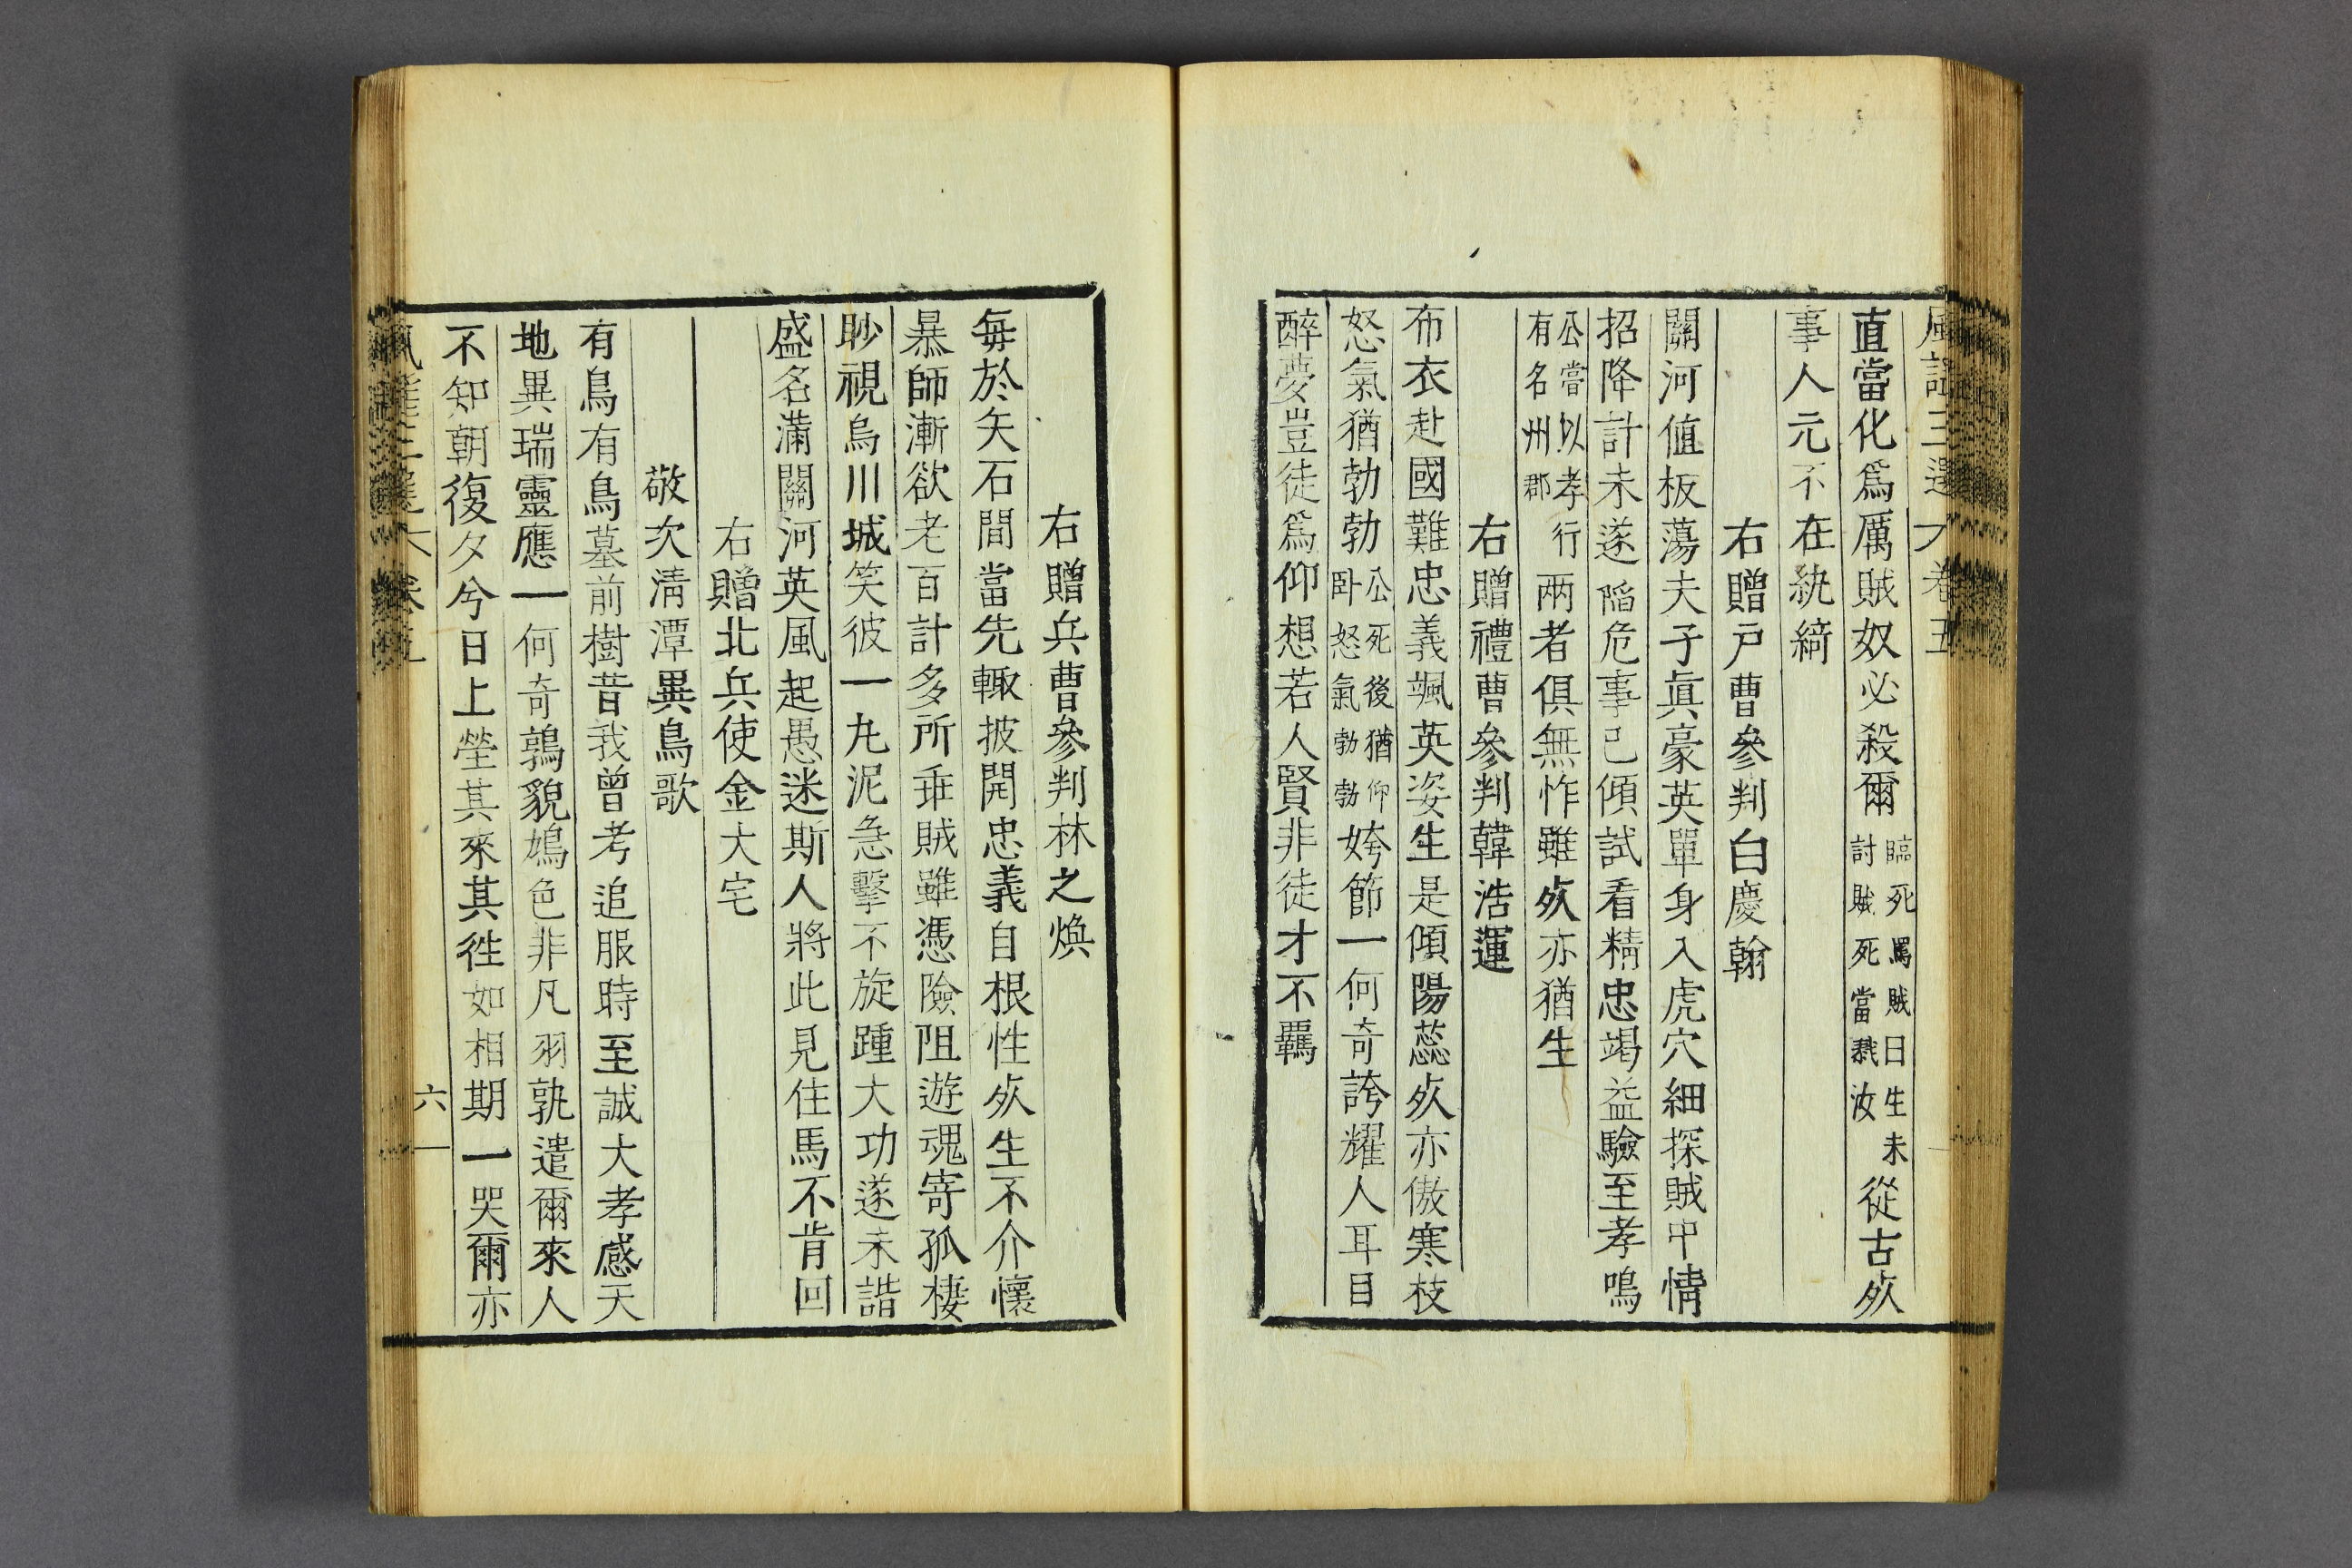 直當化爲厲賊奴必殺爾臨死罵賊曰生未討賊死當戮汝從古㱙
事人元不在紈綺
右贈戶曹參判白慶翰
關河值板蕩夫子眞豪英單身入虎穴細探賊中情
招降計未遂陷危事已傾試看精忠竭益驗至孝鳴
公嘗以孝行有名州郡兩者俱無怍雖㱙亦猶生
右贈禮曹參判韓浩運
布衣赴國難忠義颯英姿生是傾陽蕊㱙亦傲寒枝
怒氣猶勃勃公死後猶仰卧怒氣勃勃姱節一何奇誇耀人耳目
醉夢豈徒爲仰想若人賢非徒才不羈
右贈兵曹參判林之煥
每於矢石間當先輙披開忠義自根性㱙生不介懷
暴師漸欲老百計多所乖賊雖憑險阻遊魂寄孤棲
眇視烏川城笑彼一九泥急擊不旋踵大功遂未諧
盛名滿關河英風起愚迷斯人將此見住馬不肯回
右贈北兵使金大宅
敬次淸潭異鳥歌
有鳥有鳥墓前樹昔我曾考追服時至誠大孝感天
地異瑞靈應一何奇鶉貌鳩色非凡羽孰遣爾來人
不知朝復夕兮日上塋其來其徃如相期一哭爾亦
六